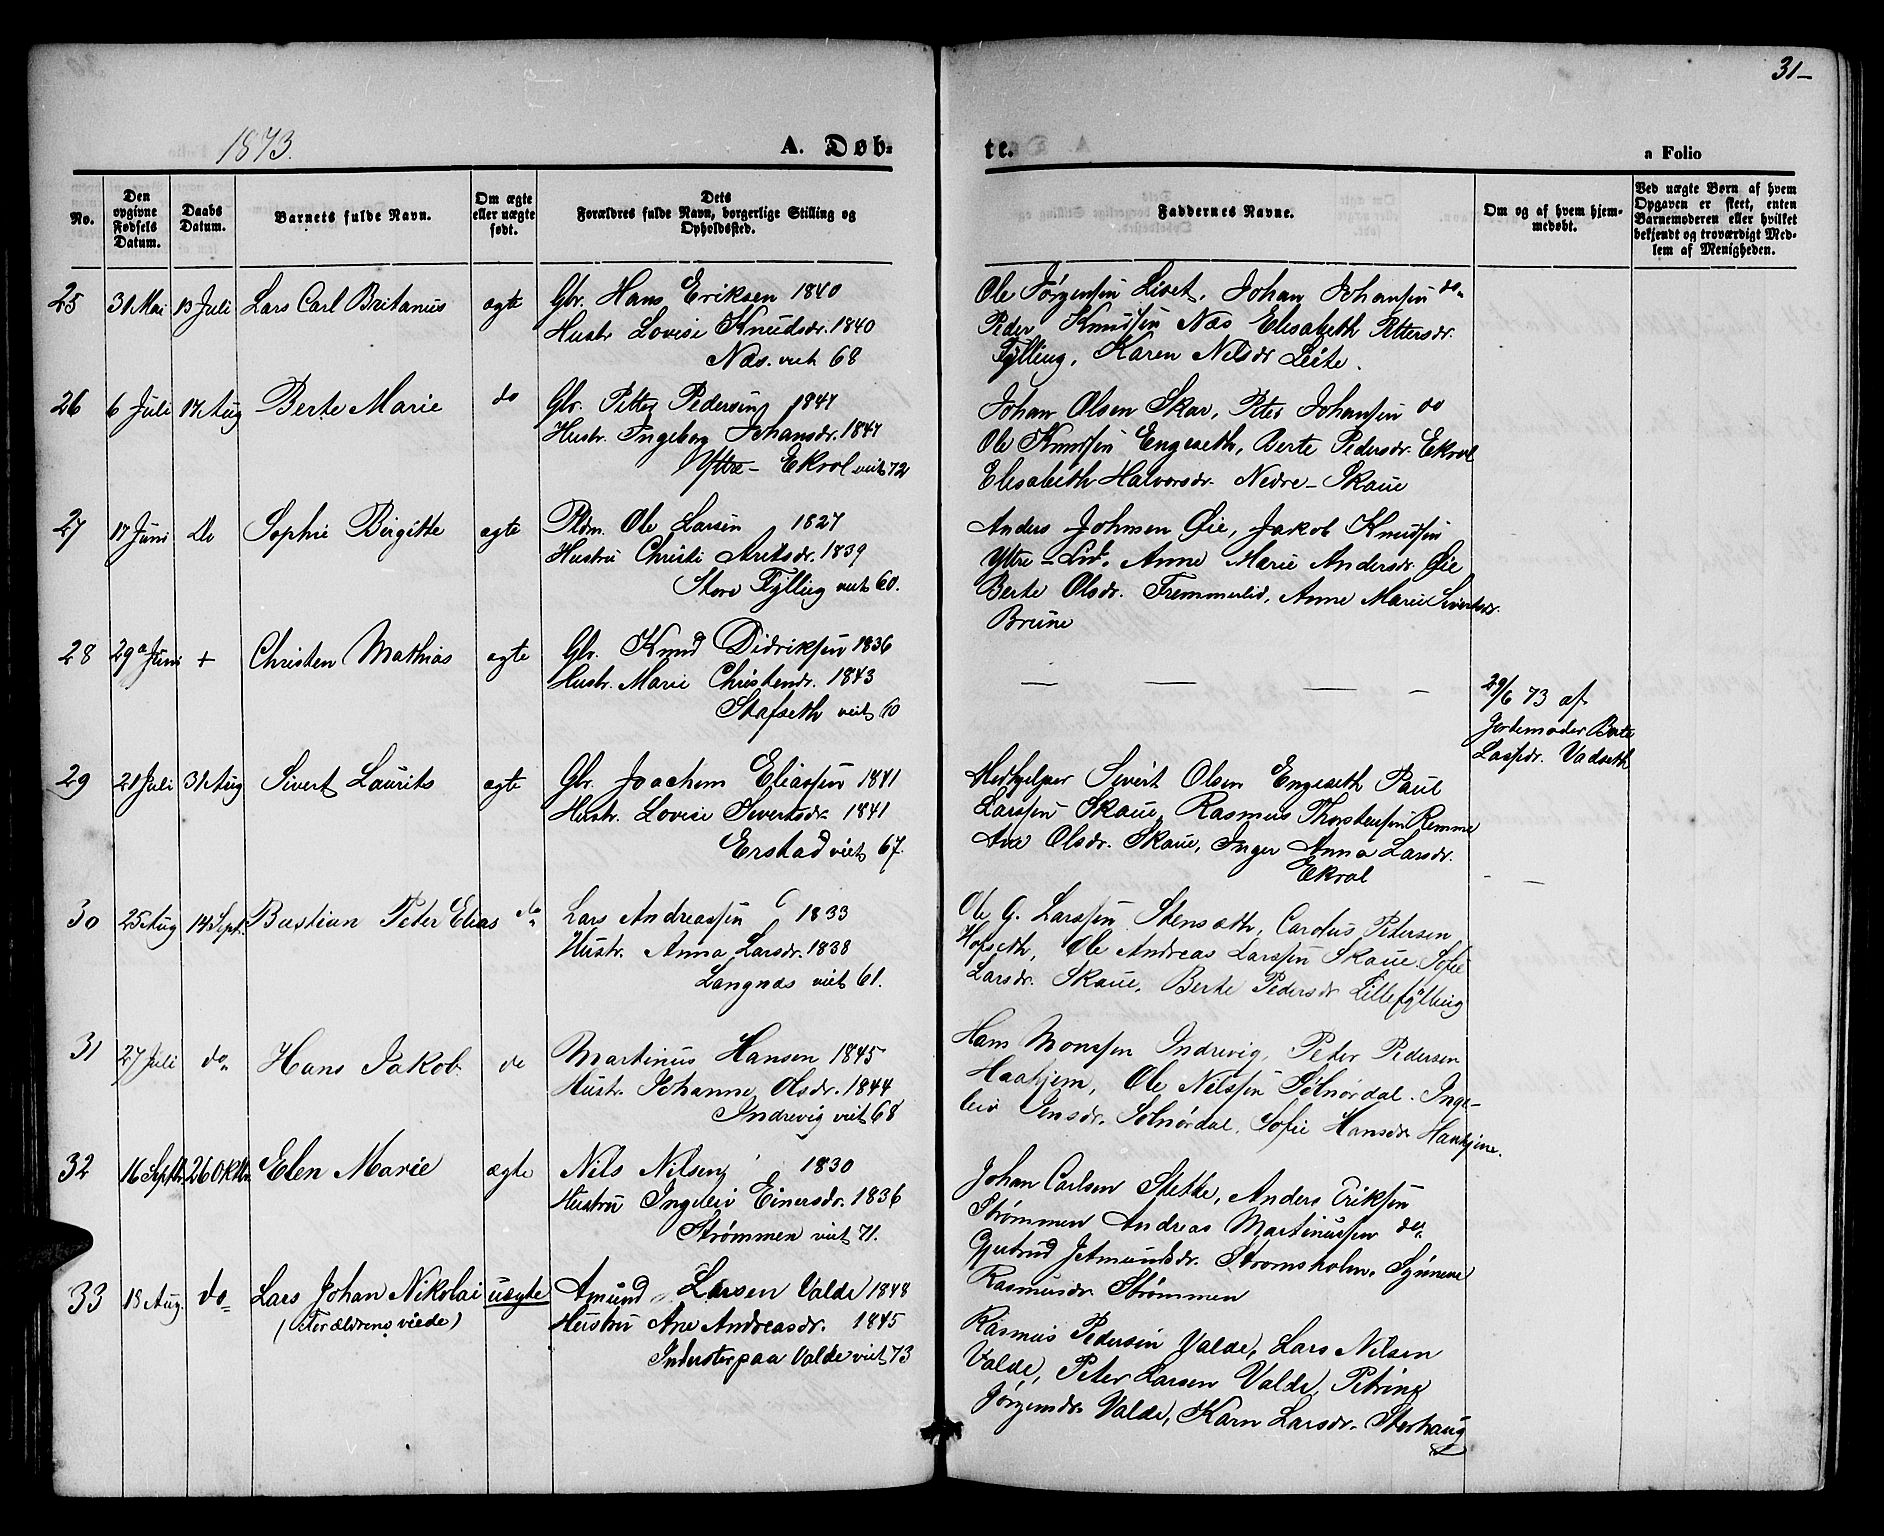 31-
1873.
A. Døb-
te.
a Folio
No.
Den opgivne Fødsels Datum.
Daabs Datum.
Barnets fulde Navn.
Om ægte eller uægte født.
Dets Forældres fulde Navn, borgerlige Stilling og Opholdssted.
Faddernes Navne.
Om og af hvem hjemmedøbt.
Ved uægte Børn af hvem Opgaven er skeet, enten Barnemoderen eller hvilket bekjendt og troværdigt Medlem af Menigheden.
25 31 Mai 13 Juli Lars Carl Britanus ægte Gbr. Hans Eriksen 1840
Hustr Lovise Knudsdr. 1840
Næs. viet 68
Ole Jørgensen Livet, Johan Johansen do
Peder Knudsen Næs Elisabeth Pettersdr.
Fylling, Karen Nilsdr Leite.
26 6 Juli 17 Aug Berte Marie do Gbr. Petter Pedersen 1847
Hustr. Ingeborg Johansdr. 1847
Yttre- Ekrol viet 72
Johan Olsen Skar, Peter Johansen do
Ole Knudsen Engeseth, Berte Pedersdr. Ekrol
Elisabeth Halvorsdr. Nedre- Skaue
27 17 Juni Do Sophie Birgitte ægte Pldm. Ole Larsen 1827
Hustru Christi Aretsdr. 1839
Store Fylling viet 60.
Anders Johnsen Øie, Jakob Knudsen
Yttre-Lid. Anne Marie Andersdr. Øie
Berte Olsdr. Fremmerlid, Anne Marie Sivertsdr.
Brune
28 29 Juni + Christen Mathias ægte Gbr. Knud Didriksen 1836
Hustr. Marie Christendr. 1843
Stafseth viet 60
29/6 73 af
Jordemoder Berte
Lassedr. Vadseth
29 21 Juli 31 Aug Sivert Laurits ægte Gbr. Joachim Eliassen 1841
Hustr. Lovise Sivertsdr 1841
Erstad viet 67.
Medhjelper Sivert Olsen Engeseth Paul
Larssen Skaue, Rasmus Thorstensen Remme
Ane Olsdr. Skaue, Inger Anna Larsdr.
Ekrol
30 25 Aug 14 Sept. Bastian Peter Elias do Lars Andreassen 1833
Hustr. Anna Larsdr. 1838
Langnæs viet 61.
Ole G. Larssen Stensæth, Carolus Petersen
Hofseth, Ole Andreas Larssen Skaue. Sofie
Larsdr. Skaue. Berte Pedersdr Lillefylling
31 27 Juli do Hans Jakob do Martinus Hansen 1845
Hustr. Johanne Olsdr. 1844
Indrevig viet 68
Hans Monssen Indrevig, Peter Pedersen
Haahjem, Ole Nilssen Sølnørdal. Inge-
leiv Jensdr. Sølnørdal. Sofie Hansdr Haahjem.
32 16 Septbr. 26 Oktbr. Elen Marie ægte Nils Nilsen 1830
Hustru Ingeleiv Einersdr. 1836
Strømmen viet 71.
Johan Carlsen Stette, Anders Eriksen
Strømmen Andreas Martinussen do
Gjertrud Jetmundsdr. Stromsholm. Synneve
Rasmusdr Strømmen
33 18 Aug. do Lars Johan Nikolai uægte Amund Larsen Valde 1848
(Forældrene viede) Hustru Ane Andreasdr. 1845
Inderster paa Valde viet 73
Rasmus Pedersen Valde, Lars Nilsen
Valde, Peter Larsen Valde, Petrine
Jørgensdr Valde, Karn Larsdr. Storhaug